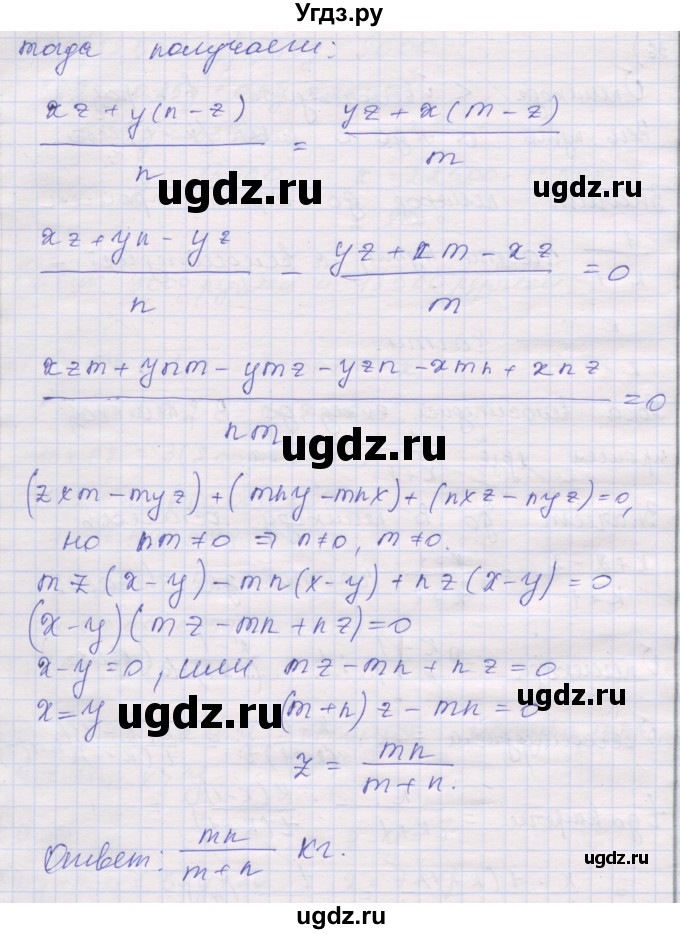 Угдз.ру
тогда получаем:
(xz + y(n - z))/n = (yz + x(m - z))/m
ugdz.ru
ugdz.ru
(xz + yn - yz)/n - (yz + xm - xz)/m = 0
ugdz.ru
(xzm + ynm - ymz - yzn - xmn + xnz)/nm = 0
ugdz.ru
(zxm - myz) + (mny - mnx) + (nxz - nyz) = 0,
но nm ≠ 0 ⇒ n ≠ 0, m ≠ 0.
mz(x-y) - mn(x-y) + nz(x-y) = 0
(x-y)(mz - mn + nz) = 0
ugdz.ru
x-y = 0, или mz - mn + nz = 0
x = y (m+n)z - mn = 0
ugdz.ru
z = mn/(m+n).
Ответ: mn/(m+n) кг.
ugdz.ru
ugdz.ru